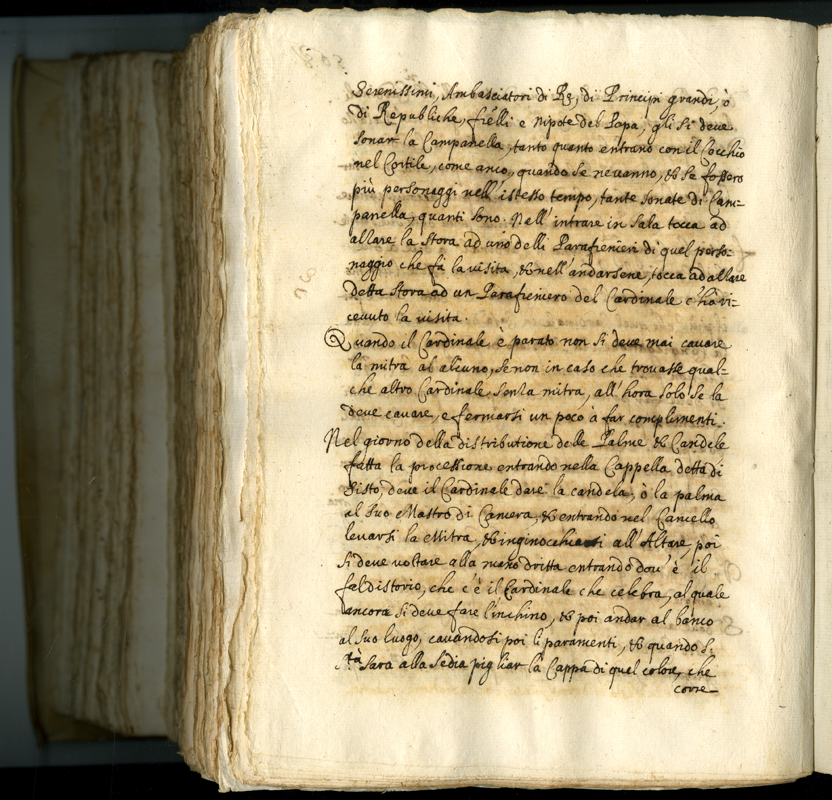 Serenissimi, Ambasciatori di Rè, di Principi grandi, ò
di Republiche, fr̃elli e nipote del Papa, gli si deve
sonar la Campanella, tanto quanto entrano con il Cocchio
nel Cortile, come anco, quando se nevanno, & se fossero
più personaggi nell'istesso tempo, tante sonate di Cam=
panella, quanti sono. Nell'intrare in sala tocca ad
allare la stora ad uno delli Parafrenieri di quel perso=
naggio che fà la visita, & nell'andarsene, tocca ad allare
detta stora ad un Parafreniero del Cardinale c'hà ri=
cevuto la visita.
Quando il Cardinale è parato non si deve mai cavare
la mitra al alcuno, se non in caso che trovasse qual=
che altro Cardinale senza mitra, all'hora solo se la
deve cavare, e fermarsi un poco à far complimenti.
Nel giorno della distributione delle Palme & Candele
fatta la processione entrando nella Cappella detta di
Sisto, deve il Cardinale dare la candela, ò la palma
al suo Mastro di Camera, & entrando nel Cancello
levarsi la Mitra, & inginocchiarsi all'Altare, poi
si deve voltare alla mano dritta entrando dov'è il
faldistorio, che c'è il Cardinale che celebra, al quale
ancora si deve fare l'inchino, & poi andar al banco
al suo luogo, cavandosi poi li paramenti, & quando S.
Stà sarà alla sedia pigliar la Cappa di quel colore, che
corre=